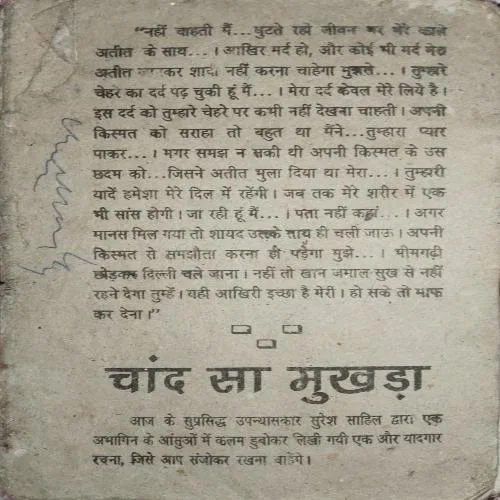 "नहीं चाहती मैं...घुटते रहो जीवन भर मेरे काले
अतीत के साथ...। आखिर मर्द हो, और कोई भी मर्द मेरा
अतीत कर शादी नहीं करना चाहेगा मुझसे...। तुम्हारे
चेहरे का दर्द पढ़ चुकी हूं मैं...। मेरा दर्द केवल मेरे लिये है।
इस दर्द को तुम्हारे चेहरे पर कभी नहीं देखना चाहती। अपनी
किस्मत को सराहा तो बहुत था मैंने...तुम्हारा प्यार
पाकर...। मगर समझ न सकी थी अपनी किस्मत के उस
छदम को...जिसने अतीत भुला दिया था मेरा...। तुम्हारी
यादें हमेशा मेरे दिल में रहेंगी। जब तक मेरे शरीर में एक
भी सांस होगी। जा रही हूं मैं...। पता नहीं कहां...। अगर
मानस मिल गया तो शायद उसके साथ ही चली जाऊं। अपनी
किस्मत से समझौता करना ही पड़ेगा मुझे...। भीमगढ़ी
छोड़कर दिल्ली चले जाना। नहीं तो खान जमाल सुख से नहीं
रहने देगा तुम्हें। यही आखिरी इच्छा है मेरी। हो सके तो माफ
कर देना।"
चांद सा मुखड़ा
आज के सुप्रसिद्ध उपन्यासकार सुरेश साहिल द्वारा एक
अभागिन के आंसुओं में कलम डुबोकर लिखी गयी एक और यादगार
रचना, जिसे आप संजोकर रखना चाहेंगे।